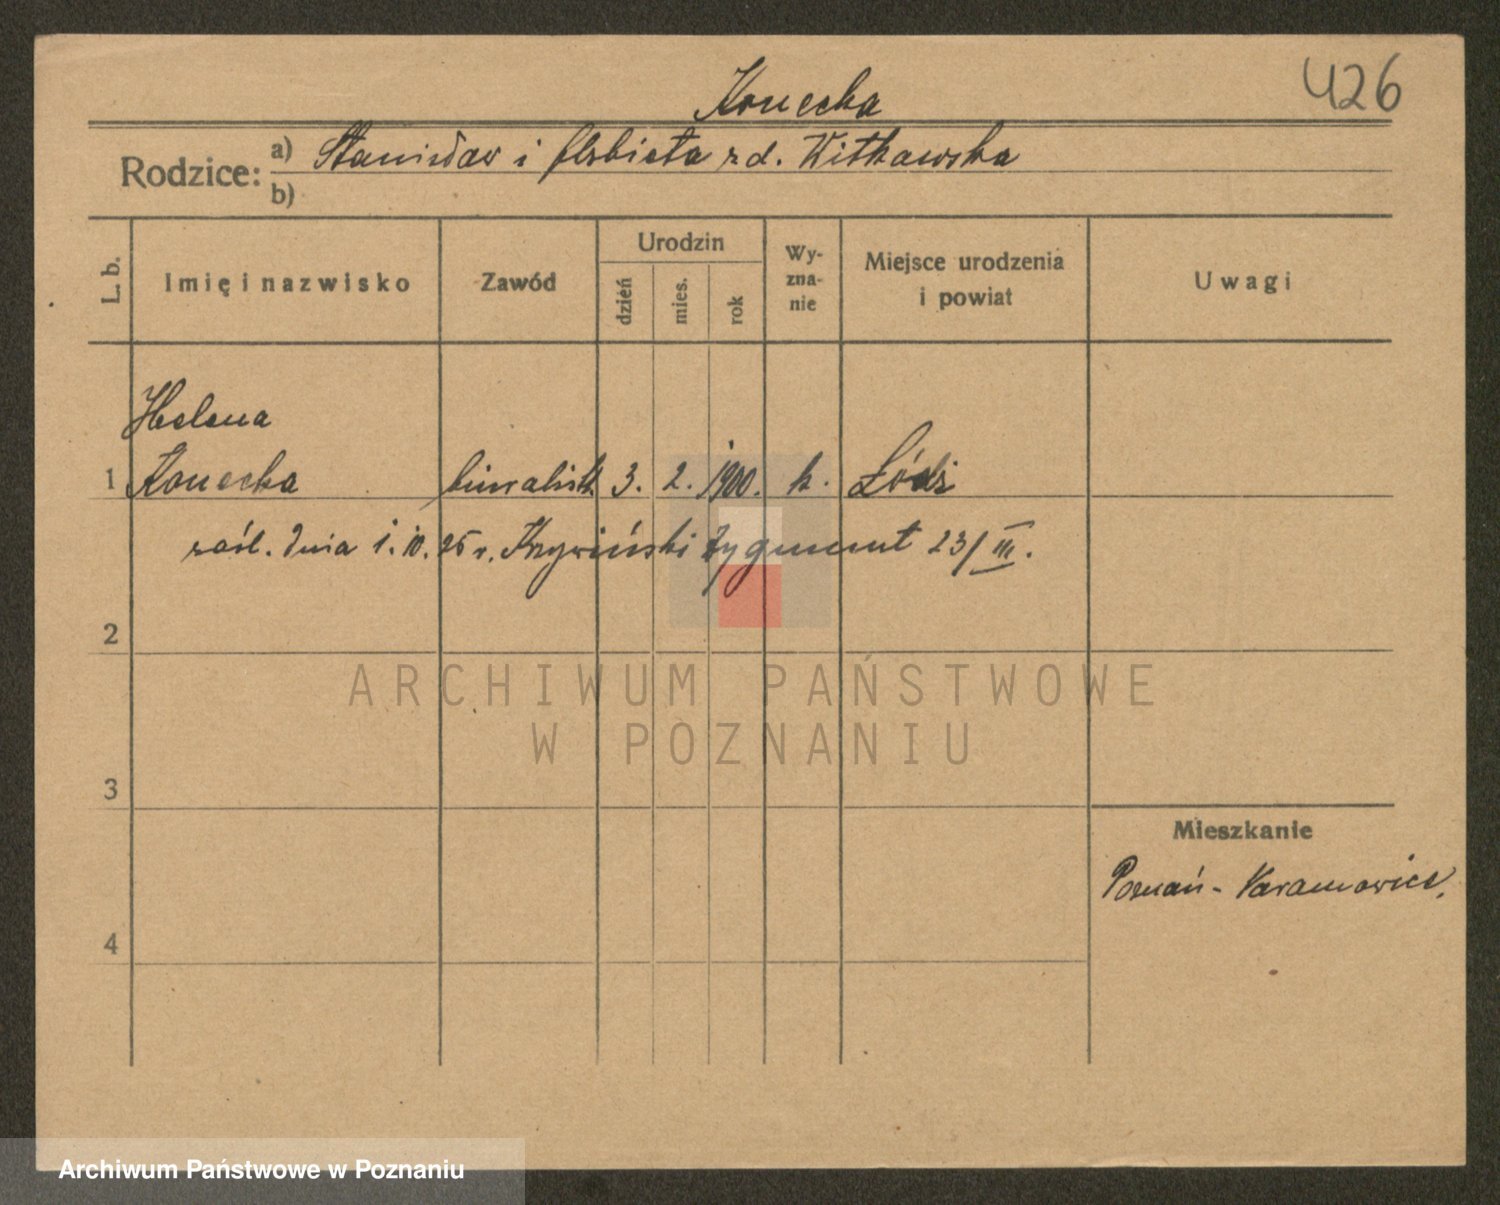 426
Konecka
Rodzice: a) Stanisław i Elżbieta zd. Witkowska
b)
L. b.
Imię i nazwisko
Zawód
Urodzin
dzień
mies.
rok
Wy-
zna-
nie
Miejsce urodzenia
i powiat
Uwagi
Helena
1 Konecka biuralistk. 3. 2. 1900. k. Łódź
zaśl. dnia 1.10.25 r. Krzywiński Zygmunt 23/III.
2
3
4
Mieszkanie
Poznań -
ARCHIWUM PAŃSTWOWE
W POZNANIU
Archiwum Państwowe w Poznaniu